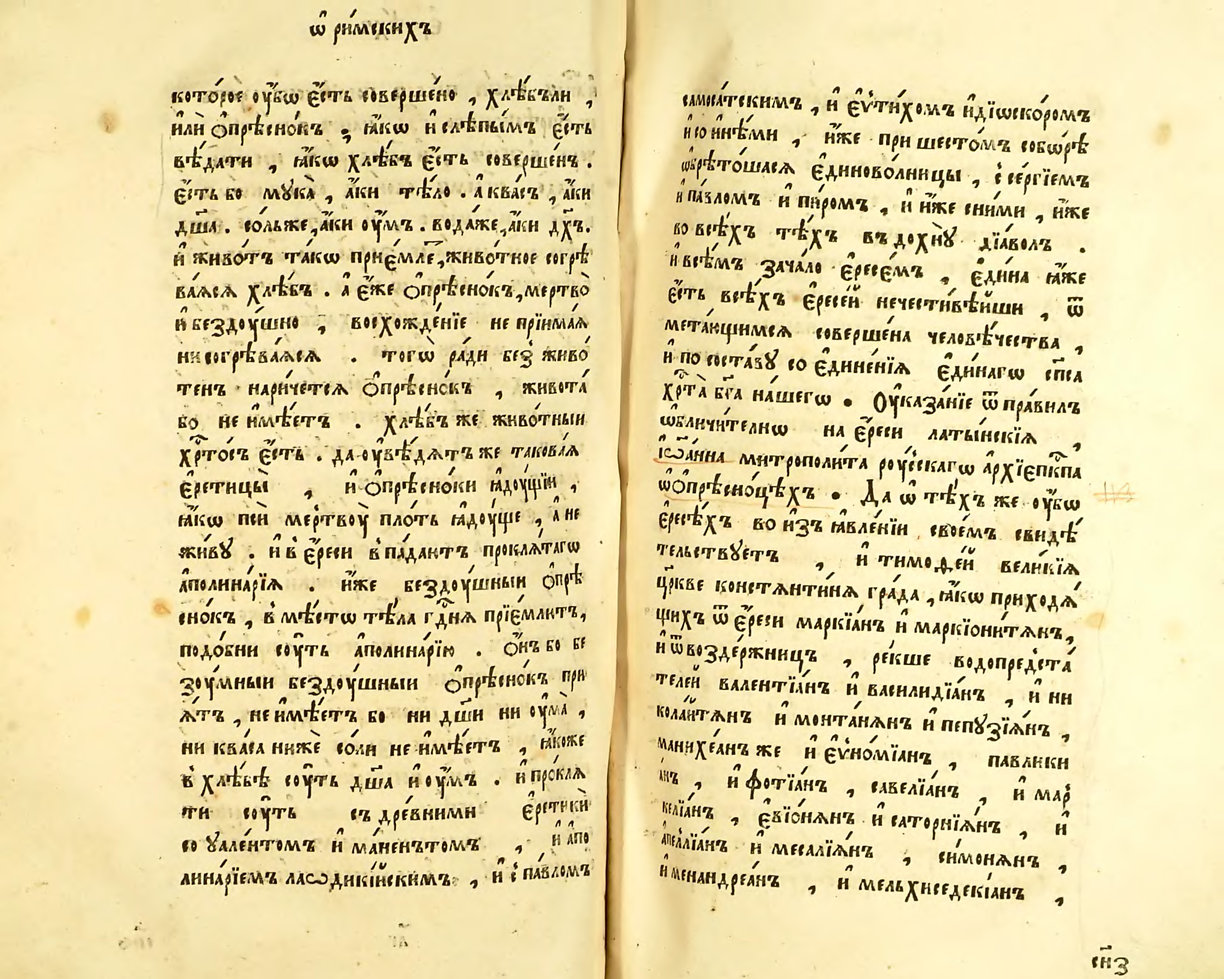 ѿ ри́мскихъ
кото́рое ᲂу҆́бѡ є҆́сть соверше́но , хлѣ́бъли ,
и҆лѝ ѻ҆прѣсно́къ , ꙗ҆́кѡ и҆ слѣпы́мъ є҆́сть
вѣ́дати , ꙗ҆́кѡ хлѣ́бъ є҆́сть соверше́нъ .
є҆́сть бо мꙋка̀ , а҆́ки тѣ́ло . а҆ ква́съ , а҆́ки
дш҃а̀ . со́льже , а҆́ки ᲂу҆́мъ . вода́же , а҆́ки дх҃ъ .
и҆ живо́тъ та́кѡ прїе́мле , живо́тное согрѣ
ва́ѧсѧ хлѣ́бъ . а҆ є҆́же ѻ҆прѣсно́къ , ме́ртво
и҆ бездоу́шно , восхожде́нїе не прїима́ѧ
ни согрѣва́ѧсѧ . тогѡ̀ ра́ди без̾ живо́
тенъ нарече́тсѧ ѻ҆прѣсно́къ , живота̀
бо не и҆мѣ́етъ . хлѣ́бъ же живо́тныи
хрⷭ҇то́съ є҆́сть . да ᲂу҆вѣ́дѧтъ же такова́ѧ
є҆ретицы̀ , и҆ ѻ҆прѣсно́ки ꙗ҆дꙋ́щїи ,
ꙗ҆́кѡ псѝ ме́ртвоу пло́ть ꙗ҆доу́ще , а҆ не
жи́вꙋ . и҆ в̾ є҆́реси в̾па́даютъ проклѧ́тагѡ
а҆полина́рїѧ . и҆́же бездоу́шныи ѻ҆прѣ
сно́къ , в̾мѣ́стѡ тѣ́ла гдⷭ҇нѧ прїе́млютъ ,
подо́бни соу́ть а҆полина́рїю . ѻ҆́нъ бо бе
зоу́мныи бездоу́шныи ѻ҆прѣсно́къ при
ѧ́тъ , не и҆мѣ́етъ бо ни дш҃ѝ ни ᲂу҆ма̀ ,
ни ква́са нижѐ со́ли не и҆мѣ́етъ , ꙗ҆́коже
в̾ хлѣ́бѣ соу́ть дш҃а̀ и҆ ᲂу҆́мъ . и҆ прокла
ти соу́ть съ дре́вними є҆ретикѝ
со ᲂуале́нтомъ и҆ мане́нътомъ , и҆ а҆по
лина́рїемъ лаѡдикі́йскимъ , и҆ с̾ па́вломъ
самоса́тскимъ , и҆ є҆ѵти́хомъ и҆ дїѡско́ромъ
и҆ со и҆нѣ́ми , и҆́же при шесто́мъ собѡ́рѣ
ѡ҆брѣто́шасѧ є҆диново́лницы , с̾ се́ргїемъ
и҆ па́вломъ и҆ пи́ромъ , и҆ и҆́же сни́ми , и҆́же
во всѣ́хъ тѣ́хъ въдохнꙋ̀ дїа́волъ .
и҆ всѣ́мъ зача́ло є҆ресе́мъ , є҆ди́на ꙗ҆́же
є҆́сть всѣ́хъ є҆ресе́й нечести́вѣйши , ѿ
мета́ющимсѧ соверше́на человѣ́чества ,
и҆ по соста́вꙋ со є҆дине́нїѧ є҆ди́нагѡ сп҃са
хрⷭ҇та̀ бг҃а на́шегѡ . Оу҆каза́нїе ѿ пра́вилъ
ѡ҆бличи́телнѡ на є҆́реси латы́нскїѧ ,
і҆ѡа́нна митрополи́та роу́сскагѡ а҆рхїепⷭ҇кпа
ѡ҆ ѻ҆прѣсноцѣ́хъ . Да ѡ҆ тѣ́хъ же ᲂу҆́бѡ
є҆ресѣ́хъ во и҆з̾ꙗвле́нїи свое́мъ свидѣ́
тельствꙋетъ , и҆ тимоѳе́й вели́кїѧ
цр҃кве констѧнти́нѧ гра́да , ꙗ҆́кѡ приходѧ́
щихъ ѿ є҆́реси маркїа́нъ и҆ маркїони́тѧнъ ,
и҆ ѿ возде́ржницъ , ре́кше водопредста́
телей валентїа́нъ и҆ василидїа́нъ , и҆ ни
кола́йтѧнъ и҆ монта́нѧнъ и҆ пепꙋзїѧ́нъ ,
манихе́анъ же и҆ є҆ѵномїа́нъ , павлики
а҆́нъ , и҆ фотїа́нъ , савелїа́нъ , и҆ мар
келїа́нъ , є҆вїонѧ́нъ и҆ саторнїѧ́нъ , и҆
а҆пеллїа́нъ и҆ месалїѧ́нъ , симонѧ́нъ ,
и҆ менандреа́нъ , и҆ мельхиседекїа́нъ ,
сн҃з